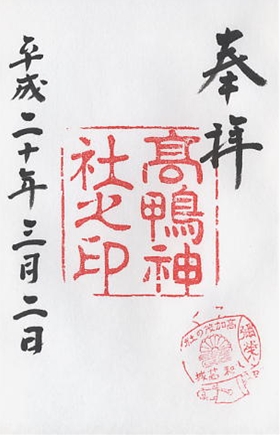 奉拝
髙鴨神
社之印
平成二十年三月二日